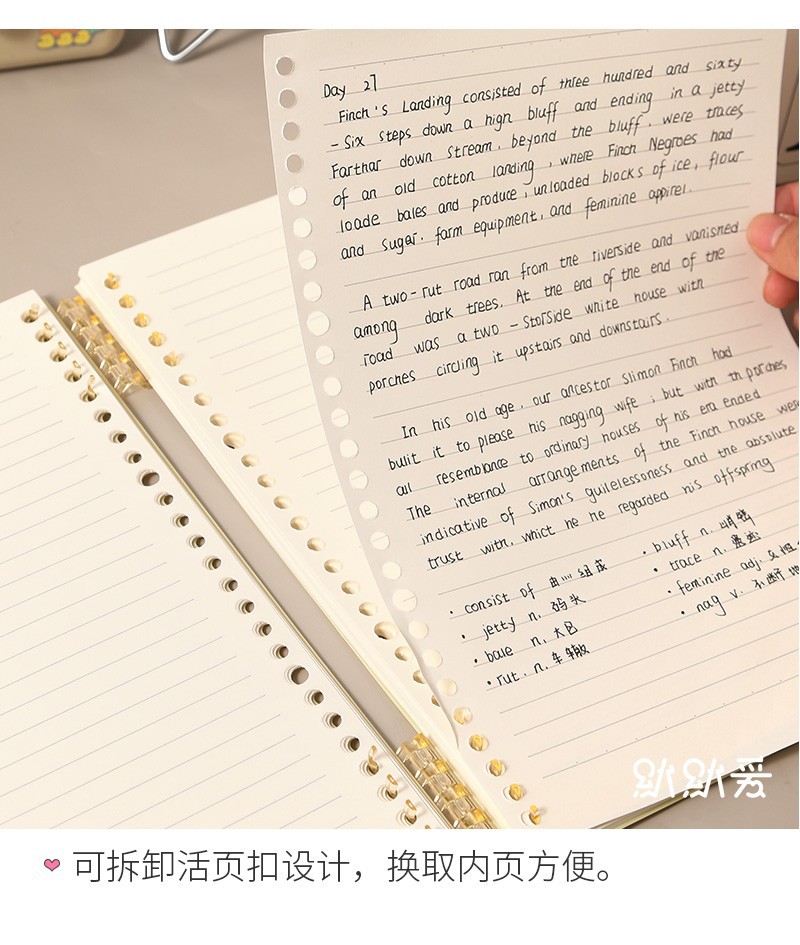 Day 27
Finch's Landing consisted of three hundred and sixty
- Six steps down a high bluff and ending in a jetty
Farthar down stream, beyond the bluff, were traces
of an old cotton landing, where Finch Negroes had
loade bales and produce, unloaded blocks of ice, flour
and sugar. farm equipment, and feminine appirel.
A two-rut road ran from the riverside and vanished
among dark trees. At the end of the end of the
road was a two-Storside white house with
porches circling it upstairs and downstairs.
In his old age, our ancestor Slimon Finch had
bulit it to please his nagging wife; but with th porches
all resemblance to ordinary houses of his era ended
The internal arrangements of the Finch house were
indicative of Simon's guilelessoness and the absolute
trust with, whict he he regarded his offspring
· consist of 由…组成
· jetty n. 码头
· bale n. 大包
· rut. n. 车辙
· bluff n. 峭壁
· trace n. 遗迹
· feminine adj. 女性
· nag v. 不断地
趴趴爱
可拆卸活页扣设计，换取内页方便。